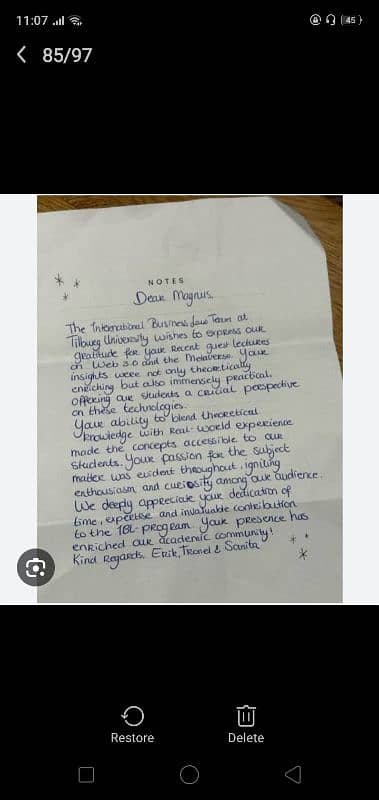 11:07
45
85/97
NOTES
Dear Magnus,
The International Business Law Team at
Tilburg University wishes to express our
gratitude for your recent guest lectures
on Web 3.0 and the Metaverse. Your
insights were not only theoretically
enriching but also immensely practical,
offering our students a crucial perspective
on these technologies.
Your ability to blend theoretical
knowledge with real-world experience
made the concepts accessible to our
students. Your passion for the subject
matter was evident throughout, igniting
enthusiasm and curiosity among our audience.
We deeply appreciate your dedication of
time, expertise and invaluable contribution
to the IBL-program. Your presence has
enriched our academic community!
Kind Regards, Erik, &
Restore
Delete